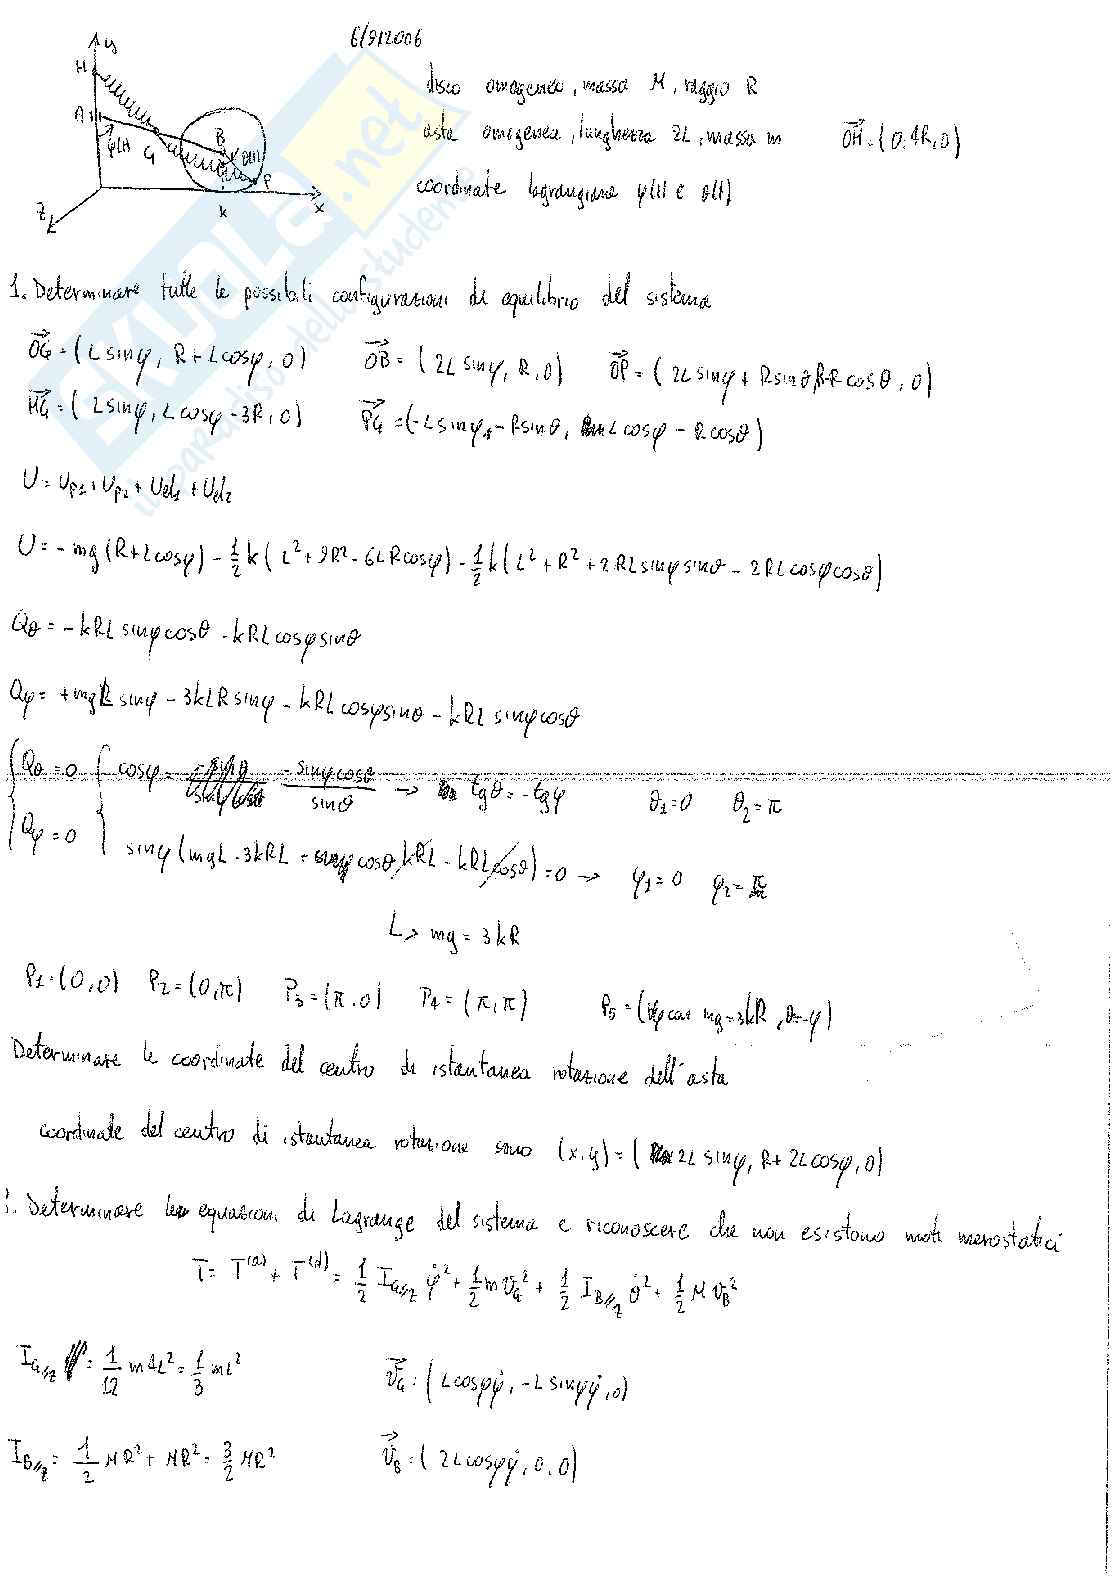 6/9/2006
y
H
A
φ(t)
G
B
θ(t)
P
K
x
z
disco omogeneo, massa M, raggio R
asta omogenea, lunghezza 2L, massa m    OH = (0,4R,0)
coordinate lagrangiane φ(t) e θ(t)
1. Determinare tutte le possibili configurazioni di equilibrio del sistema
OG = (L sinφ, R + L cosφ, 0)    OB = (2L sinφ, R, 0)    OP = (2L sinφ + R sinθ, R-R cosθ, 0)
HG = (L sinφ, L cosφ - 3R, 0)    PG = (-L sinφ - R sinθ, L cosφ - R cosθ)
U = Up1 + Up2 + Uel1 + Uel2
U = - mg (R + L cosφ) - 1/2 k (L² + 9R² - 6LR cosφ) - 1/2 k (L² + R² + 2RL sinφ sinθ - 2RL cosφ cosθ)
Qθ = - kRL sinφ cosθ - kRL cosφ sinθ
Qφ = + mgL sinφ - 3kLR sinφ - kRL cosφ sinθ - kRL sinφ cosθ
{ Qθ = 0 { cosφ = - sinφ cosθ / sinθ → tgθ = - tgφ    θ1 = 0    θ2 = π
{ Qφ = 0 { sinφ (mgL - 3kRL + cosθ kRL - kRL cosθ) = 0 → φ1 = 0    φ2 = π
↳ mg = 3kR
P1 = (0,0)    P2 = (0,π)    P3 = (π,0)    P4 = (π,π)    P5 = (φ con mg = 3kR, θ = -φ)
Determinare le coordinate del centro di istantanea rotazione dell'asta
coordinate del centro di istantanea rotazione sono (x,y) = (2L sinφ, R + 2L cosφ, 0)
Determinare le equazioni di Lagrange del sistema e riconoscere che non esistono moti merostatici
T = T(a) + T(d) = 1/2 IG//z φ̇² + 1/2 m vG² + 1/2 IB//z θ̇² + 1/2 M vB²
IG//z = 1/12 m 4L² = 1/3 mL²    vG = (L cosφ φ̇, -L sinφ φ̇, 0)
IB//z = 1/2 MR² + MR² = 3/2 MR²    vB = (2L cosφ φ̇, 0, 0)
SKUOLA.net
il paradiso dello studente